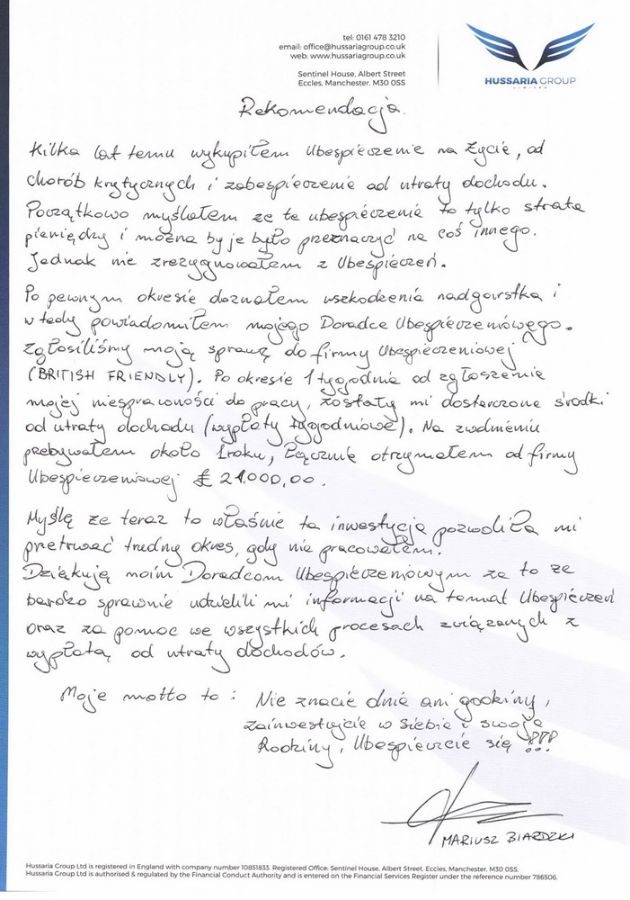 tel: 0161 478 3210
email: office@hussariagroup.co.uk
web: www.hussariagroup.co.uk
Sentinel House, Albert Street
Eccles, Manchester, M30 0SS
HUSSARIA GROUP
LIMITED
Rekomendacja.
Kilka lat temu wykupiłem Ubespieczenie na Życie, od
chorób krytycznych i zabespieczenie od utraty dochodu.
Początkowo myślałem ze te ubespieczenia to tylko strata
pieniędzy i można by je było przeznaczyć na coś innego.
Jednak nie zrezygnowałem z Ubespieczeń.
Po pewnym okresie doznałem uszkodzenia nadgarstka i
wtedy powiadomiłem mojego Doradce Ubespieczeniowego.
Zgłosiliśmy moją sprawę do firmy Ubespieczeniowej
(BRITISH FRIENDLY). Po okresie 1 tygodnia od zgłoszenia
mojej niesprawności do pracy, zostały mi dostarczone środki
od utraty dochodu (wypłaty tygodniowe). Na zwolnieniu
przebywałem około 1roku, Łącznie otrzymałem od firmy
Ubespieczeniowej £ 21.000,00.
Myślę ze teraz to właśnie ta inwestycja pozwoliła mi
przetrwać trudny okres, gdy nie pracowałem.
Dziękuję moim Doradcom Ubespieczeniowym za to ze
bardzo sprawnie udzielili mi informacji na temat Ubespieczeń
oraz za pomoc we wszystkich procesach związanych z
wypłatą od utraty dochodów.
Moje motto to : Nie znacie dnia ani godziny,
zainwestujcie w siebie i swoje
Rodziny, Ubespieczcie się !!!
MARIUSZ BIARDZKI
Hussaria Group Ltd is registered in England with company number 10851833. Registered Office: Sentinel House, Albert Street, Eccles, Manchester, M30 0SS.
Hussaria Group Ltd is authorised & regulated by the Financial Conduct Authority and is entered on the Financial Services Register under the reference number 786506.